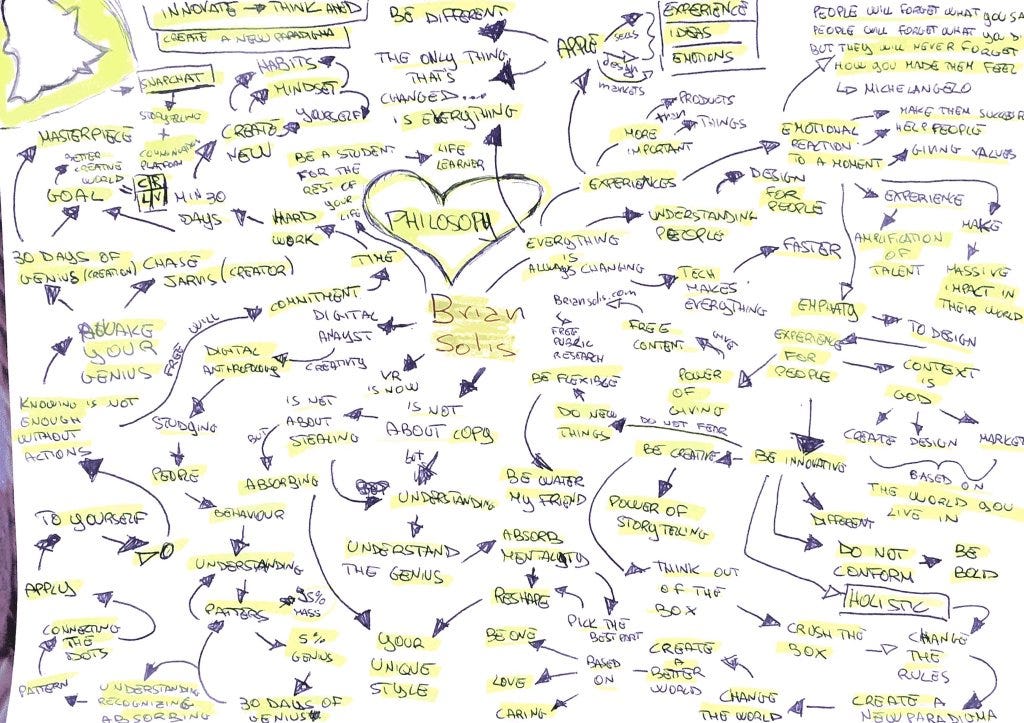 INNOVATE → THINK AHED
CREATE A NEW PARADIGMA
SNAPCHAT
STORYTELLING
+
PLATFORM
HABITS
MINDSET
YOURSELF
CREATE
NEW
MASTERPIECE
BETTER
CREATIVE
WORLD
GOAL
MIN 30
DAYS
HARD
WORK
BE A STUDENT
FOR THE
REST OF
YOUR
LIFE
LIFE
LEARNER
BE DIFFERENT
THE ONLY THING
THAT'S
CHANGED...
IS EVERYTHING
APPLE
SELLS
DESIGN
MARKETS
EXPERIENCE
IDEAS
EMOTIONS
PEOPLE WILL FORGET WHAT YOU SA
PEOPLE WILL FORGET WHAT YOU D
BUT THEY WILL NEVER FORGET
HOW YOU MADE THEM FEEL
MICHELANGELO
PRODUCTS
THAN
THINGS
MORE
IMPORTANT
EXPERIENCES
EMOTIONAL
REACTION
TO A MOMENT
MAKE THEM SUCCEER
HELP PEOPLE
GIVING VALUES
DESIGN
FOR
PEOPLE
EXPERIENCE
AMPLIFICATION
OF
TALENT
MAKE
MASSIVE
IMPACT IN
THEIR WORLD
PHILOSOPHY
Brian
Solis
UNDERSTANDING
PEOPLE
EVERYTHING
IS
ALWAYS CHANGING
TECH
MAKES
EVERYTHING
FASTER
30 DAYS OF
GENIUS (CREATION)
CHASE
JARVIS (CREATOR)
TIME
COMMITMENT
FREE WILL
AWAKE
YOUR
GENIUS
KNOWING IS NOT
ENOUGH
WITHOUT
ACTIONS
DIGITAL
ANALYST
CREATIVITY
DIGITAL
ANTHROPOLOGY
STUDYING
PEOPLE
BEHAVIOUR
UNDERSTANDING
PATTERS
95%
MASS
5%
GENIUS
30 DAYS OF
GENIUS
UNDERSTANDING
RECOGNIZING
ABSORBING
PATTERN
CONNECTING
THE
DOTS
APPLY
TO YOURSELF
VR
IS NOW
IS NOT
ABOUT COPY
IS NOT
ABOUT
STEALING
BUT
ABSORBING
but
UNDERSTANDING
UNDERSTAND
THE GENIUS
YOUR
UNIQUE
STYLE
ABSORB
MENTALITY
RESHAPE
PICK THE
BEST PART
Briansolis.com
FREE
PUBLIC
RESEARCH
FREE
CONTENT
GIVE
POWER
OF
GIVING
EMPHATY
TO DESIGN
EXPERIENCE
FOR
PEOPLE
CONTEXT
IS
GOD
CREATE
DESIGN
MARKET
BASED ON
THE WORLD YOU
LIVE IN
BE FLEXIBLE
DO NEW
THINGS
DO NOT FEAR
BE WATER
MY FRIEND
BE CREATIVE
BE INNOVATIVE
POWER OF
STORYTELLING
DIFFERENT
DO NOT
CONFORM
BE
BOLD
HOLISTIC
THINK OUT
OF THE
BOX
CRUSH THE
BOX
CHANGE
THE
RULES
CREATE A
NEW PARADIGMA
CHANGE
THE WORLD
CREATE
A
BETTER
WORLD
BASED
ON
BE ONE
LOVE
CARING